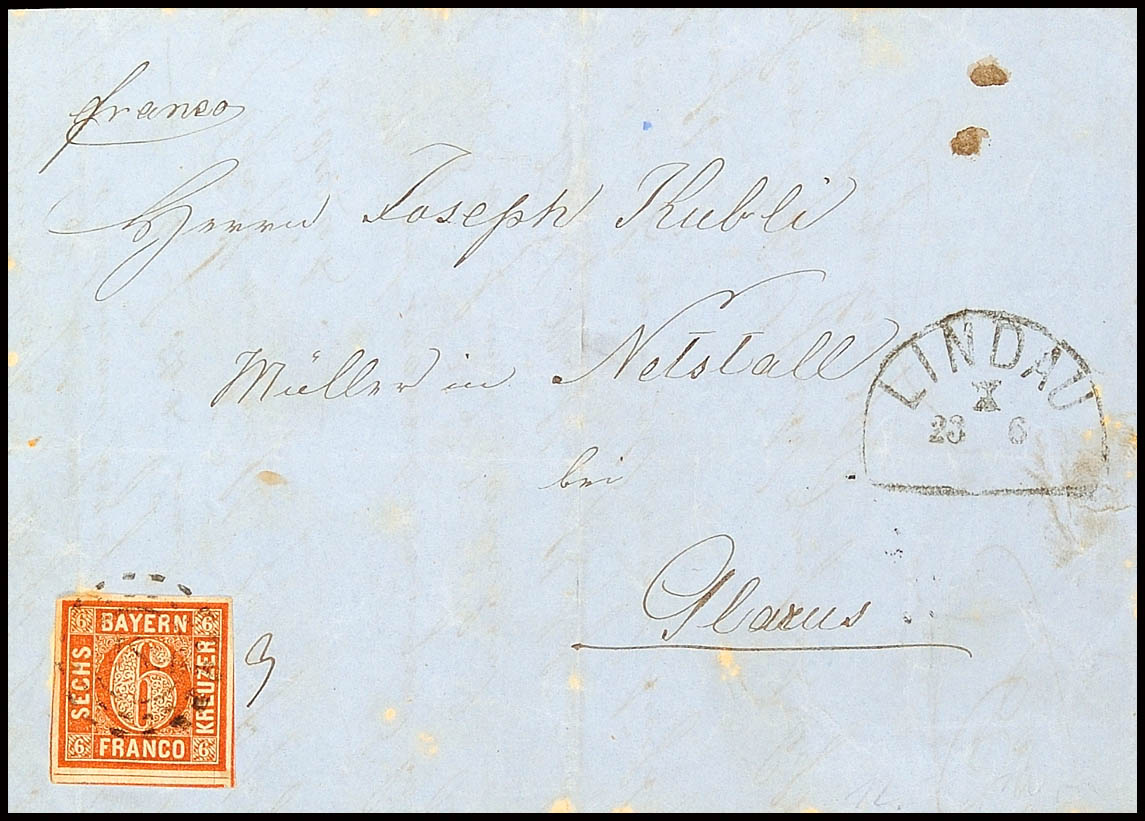 franco
Herrn Joseph Kubli
Müller in Netstall
LINDAU
X
23 6
bei
Glarus
6 BAYERN 6
SECHS 6 KREUZER
6 FRANCO 6